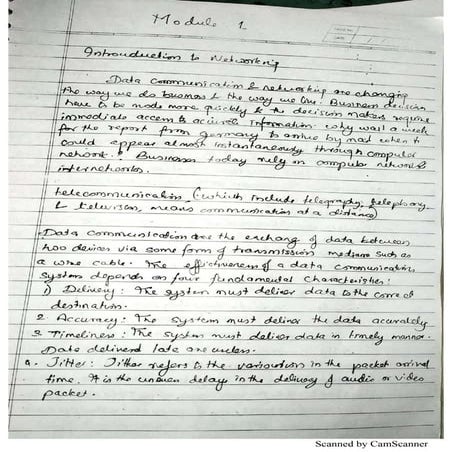 Module 1
Introuduction to Networking
Data communication & networking are changing
the way we do business & the way we live. Business decision
have to be made more quickly & the decision makers require
immediate access to accurate information. why wait a week
for the report from germany to arrive by mail when it
could appear almost instantaneously through computer
network? Businesses today rely on computer networks
internetworks.
telecommunication (which include telegraphy, telephony
& television, means communication at a distance)
Data communication are the exchang of data between
two devices via some form of transmission medium such as
a wire cable. The effictiveness of a data communication
system depends on four fundamental characteristics:
1) Delivery: The system must deliver data to the corre ct
destination.
2. Accuracy: The system must deliver the data accurately
3. Timeliness: The system must deliver data in timely manner.
Data deliverd late are useless.
4. Jitter: Jitter refers to the variation in the packet arrival
time. It is the uneven delay in the delivery of audio or video
packet.
Scanned by CamScanner